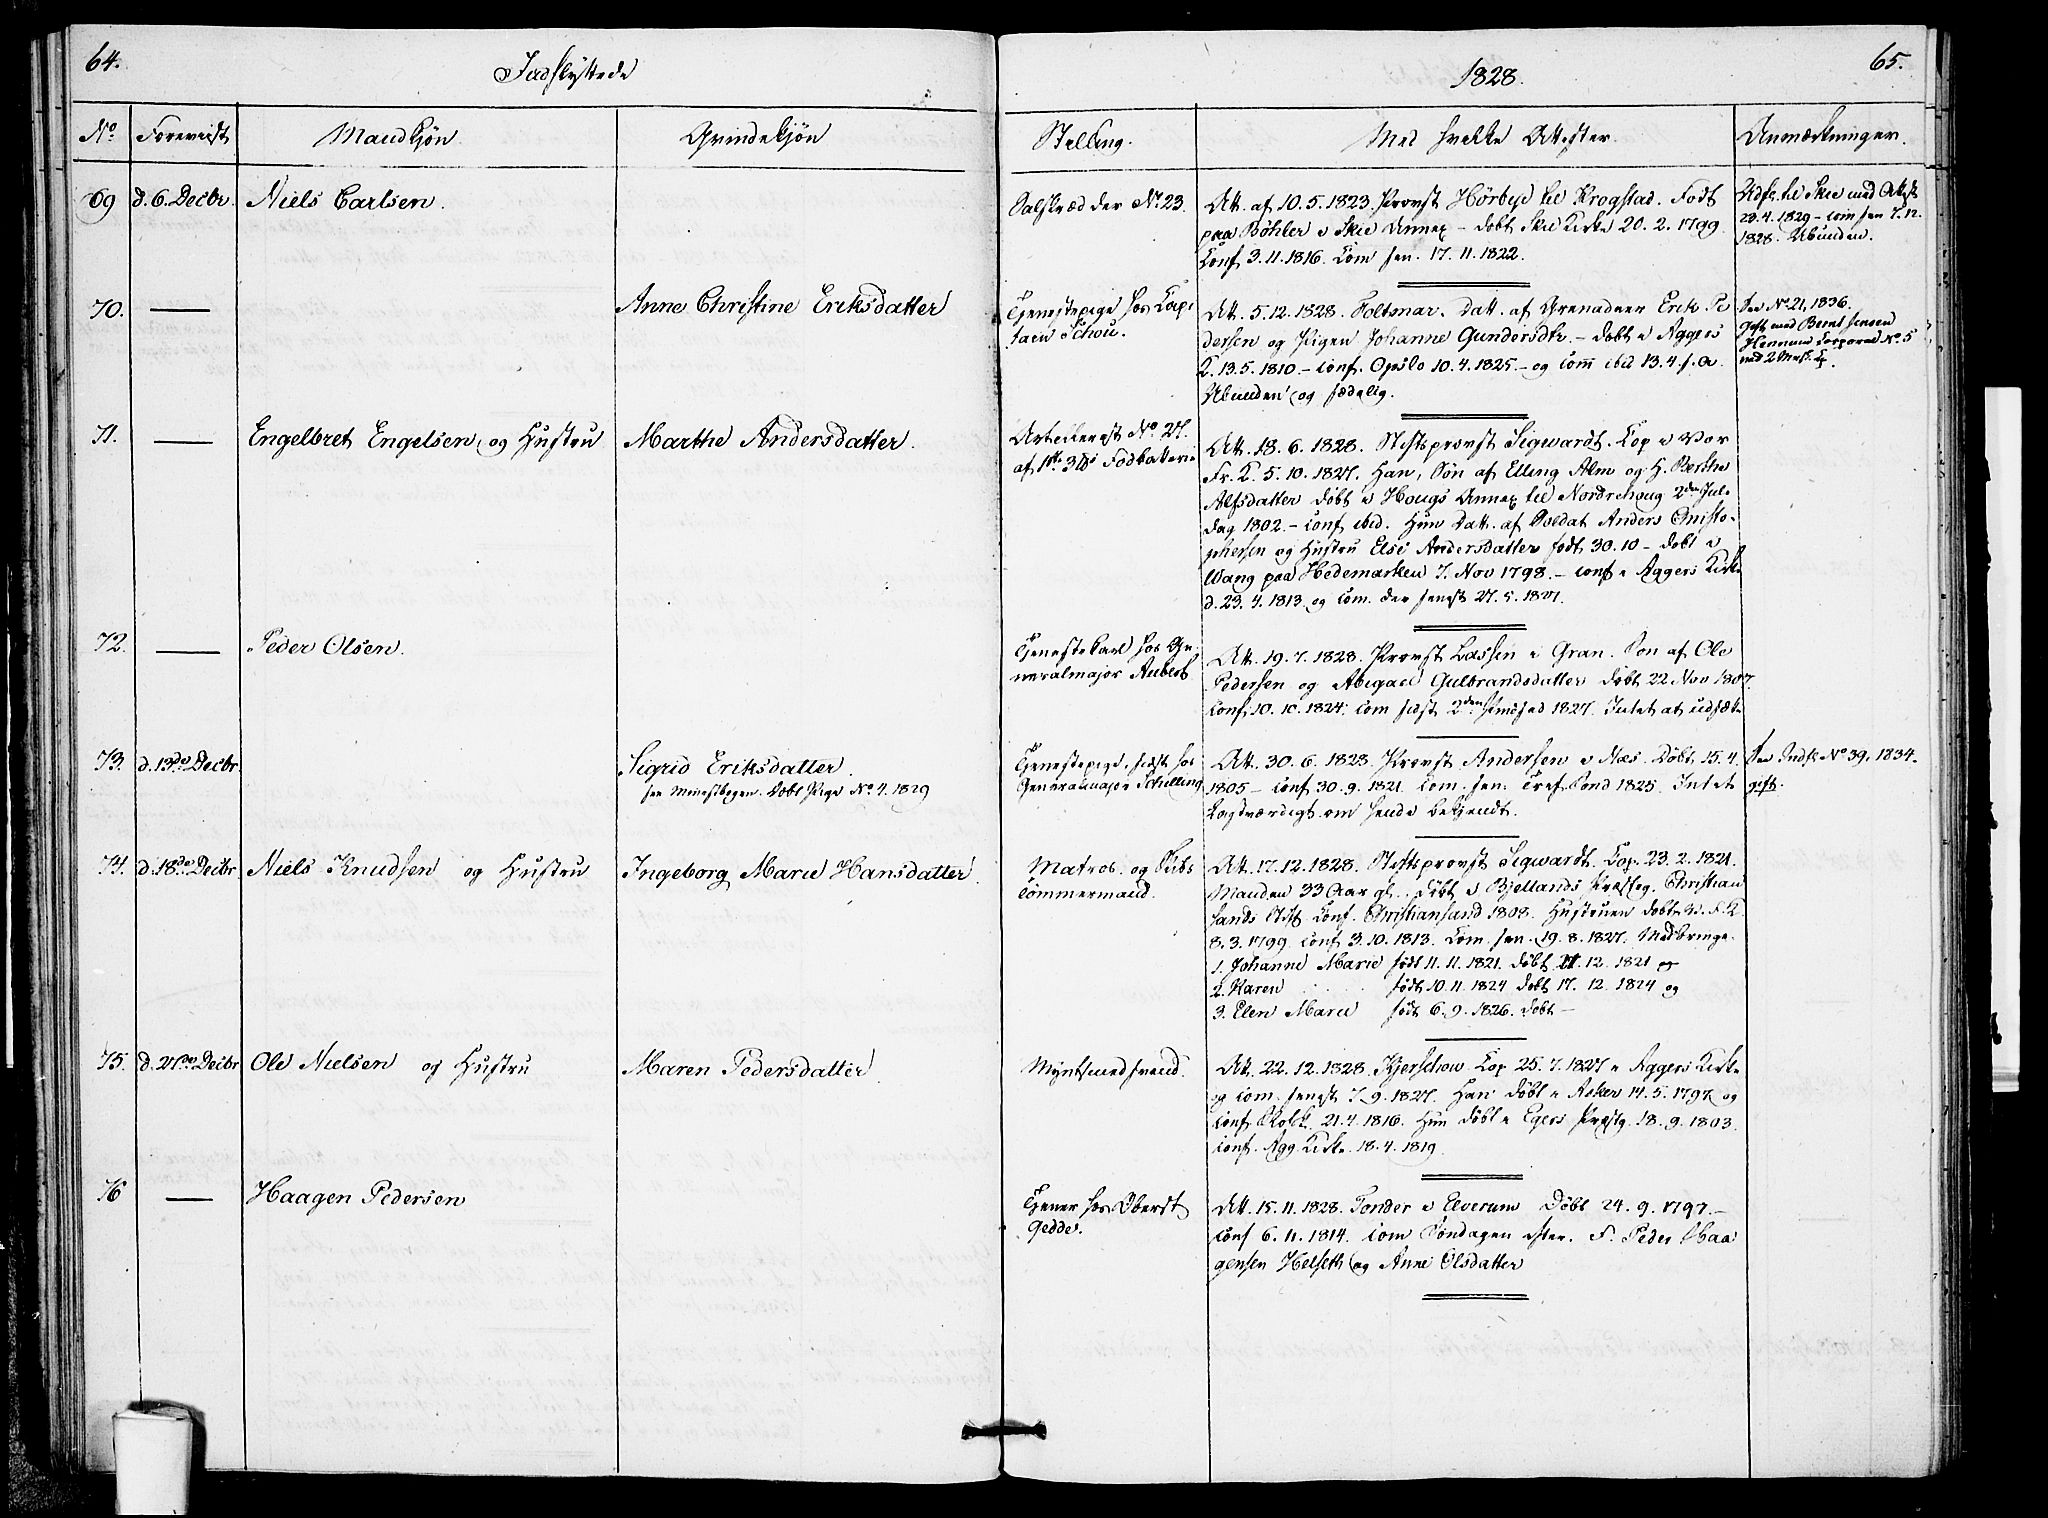 64.
Indflyttede
No
Foreviist
Mandkjøn.
Qvindekjøn
69
d. 6. Decbr.
Niels Carlsen.
70.
Anne Christine Eriksdatter
71.
Engelbret Engelsen og Hustru
Marthe Andersdatter.
72.
Peder Olsen.
73.
d. 13de Decbr.
Sigrid Eriksdatter.
see Ministbogen. Døbt Pige No 4. 1829
74.
d. 18de Decbr
Niels Knudsen og Hustru
Ingeborg Marie Hansdatter.
75.
d. 27de Decbr
Ole Nielsen og Hustru
Maren Pedersdatter.
76
Haagen Pedersen
1828.
65.
Stilling.
Med hvilke Attester.
Anmærkninger.
der No. 23.
Att. af 10. 5. 1823. Provst Hørbye til Krogstad. Født
paa Bøhler i Skie Annex – døbt Skie Kirke 20. 2. 1799
Conf. 3. 11. 1816. Com sen. 17. 11. 1822.
Udfl. til Skie med Attest
23. 4. 1829 – com sen 7. 12.
1828. Ubunden.
Tjenestepige hos Capi
tain Schou.
Att. 5. 12. 1828. Foltmar. Datt. af Grenadeer Erik Pe
dersen og Pigen Johanne Gundersdtr. – døbt i Aggers
K. 13. 5. 1810. – conf. Opslo 10. 4. 1825. – og com ibid 13. 4. s. A.
Ubunden og sædelig.
See No. 21, 1836.
Gift med Bernt Jensen
Hennum Corporal No. 5
Artillerist No. 27.
af 1ste 3 Fodbatterie
Att. 18. 6. 1828. Stiftsprovst Sigwardt. Cop i Vor
Fr. K. 5. 10. 1827. Han, Søn af Elling Alm og H. Berthe
Alfsdatter døbt i Hougs Annex til Nordrehoug 2den Jule
dag 1802. – conf ibid. Hun Datt. af Soldat Anders Christo-
phersen og Hustru Else Andersdatter født 30. 10 – døbt i
Wang paa Hedemarken 7. Nov 1798. – conf i Aggers Kirke
d. 23. 4. 1813. og com. der senest 27. 5. 1821.
Tjenestekarl hos Ge
neralmajor Aubert
Att. 19. 7. 1828. Provst Lassen i Gran. Søn af Ole
Pedersen og Abigael Gulbrandsdatter døbt 22 Nov 1807.
Conf. 10. 10. 1824. com sidst 2den 1827. Intet at udsætte
Tjenestepige, sidst hos
Generalmajor Schilling
Att. 30. 6. 1823. Provst Andersen i Næs. Døbt 15. 4.
1805 – Conf 30. 9. 1821. com. sen. Tref. Sond 1825. Intet
Lagtværdigt om hende bekjendt.
See Indfl. No 39, 1834.
gift.
Matros og Skibs
Tømmermand.
Att. 17. 12. 1828. Stiftsprovst Sigwardt. Cop. 23. 2. 1821.
Manden 33 Aar gl. døbt i Bjellands Præsteg. Christian
sands Stift. Conf. Christiansand 1808. Hustruen døbt V. F. K.
8. 3. 1799. conf 3. 10. 1813. Com. sen. 19. 8. 1827. Medbringe.
1. Johanne Marie født 11. 11. 1821. døbt 21. 12. 1821 og
2. Karen født 10. 11. 1824 døbt 17. 12. 1824 og
3. Elen Marie født 6. 9. 1826. døbt –
Myntsmedsvend.
Att. 22. 12. 1828. Kjerschow Cop 25. 7. 1827 i Aggers Kirke
og com. senest 7. 9. 1827. Han døbt i Asker 14. 5. 1797 og
conf 21. 4. 1816. Hun døbt i Egers Præstg. 18. 9. 1803.
conf. Agg Kirke. 18. 4. 1819.
Tjener hos Oberst
Gedde.
Att. 15. 11. 1828. Tonder i Elverum Døbt 24. 9. 1797. –
conf 6. 11. 1814. com Søndagen efter. F. Peder Haa
gensen Helseth og Anne Olsdatter